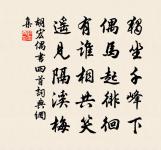 獨坐千峰下
偶焉起徘徊
有誰相共笑
遙見隔溪梅
胡宏偶書四首詞典網
集